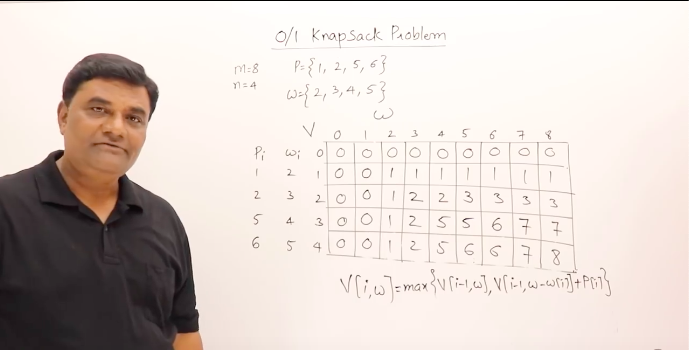 0/1 Knapsack Problem
m=8 P={1, 2, 5, 6}
n=4 w={2, 3, 4, 5}
w
V 0 1 2 3 4 5 6 7 8
Pi wi 0 0 0 0 0 0 0 0 0 0
1 2 1 0 0 1 1 1 1 1 1 1
2 3 2 0 0 1 2 2 3 3 3 3
5 4 3 0 0 1 2 5 5 6 7 7
6 5 4 0 0 1 2 5 6 6 7 8
V[i,w]=max{V[i-1,w], V[i-1,w-w[i]]+P[i]}